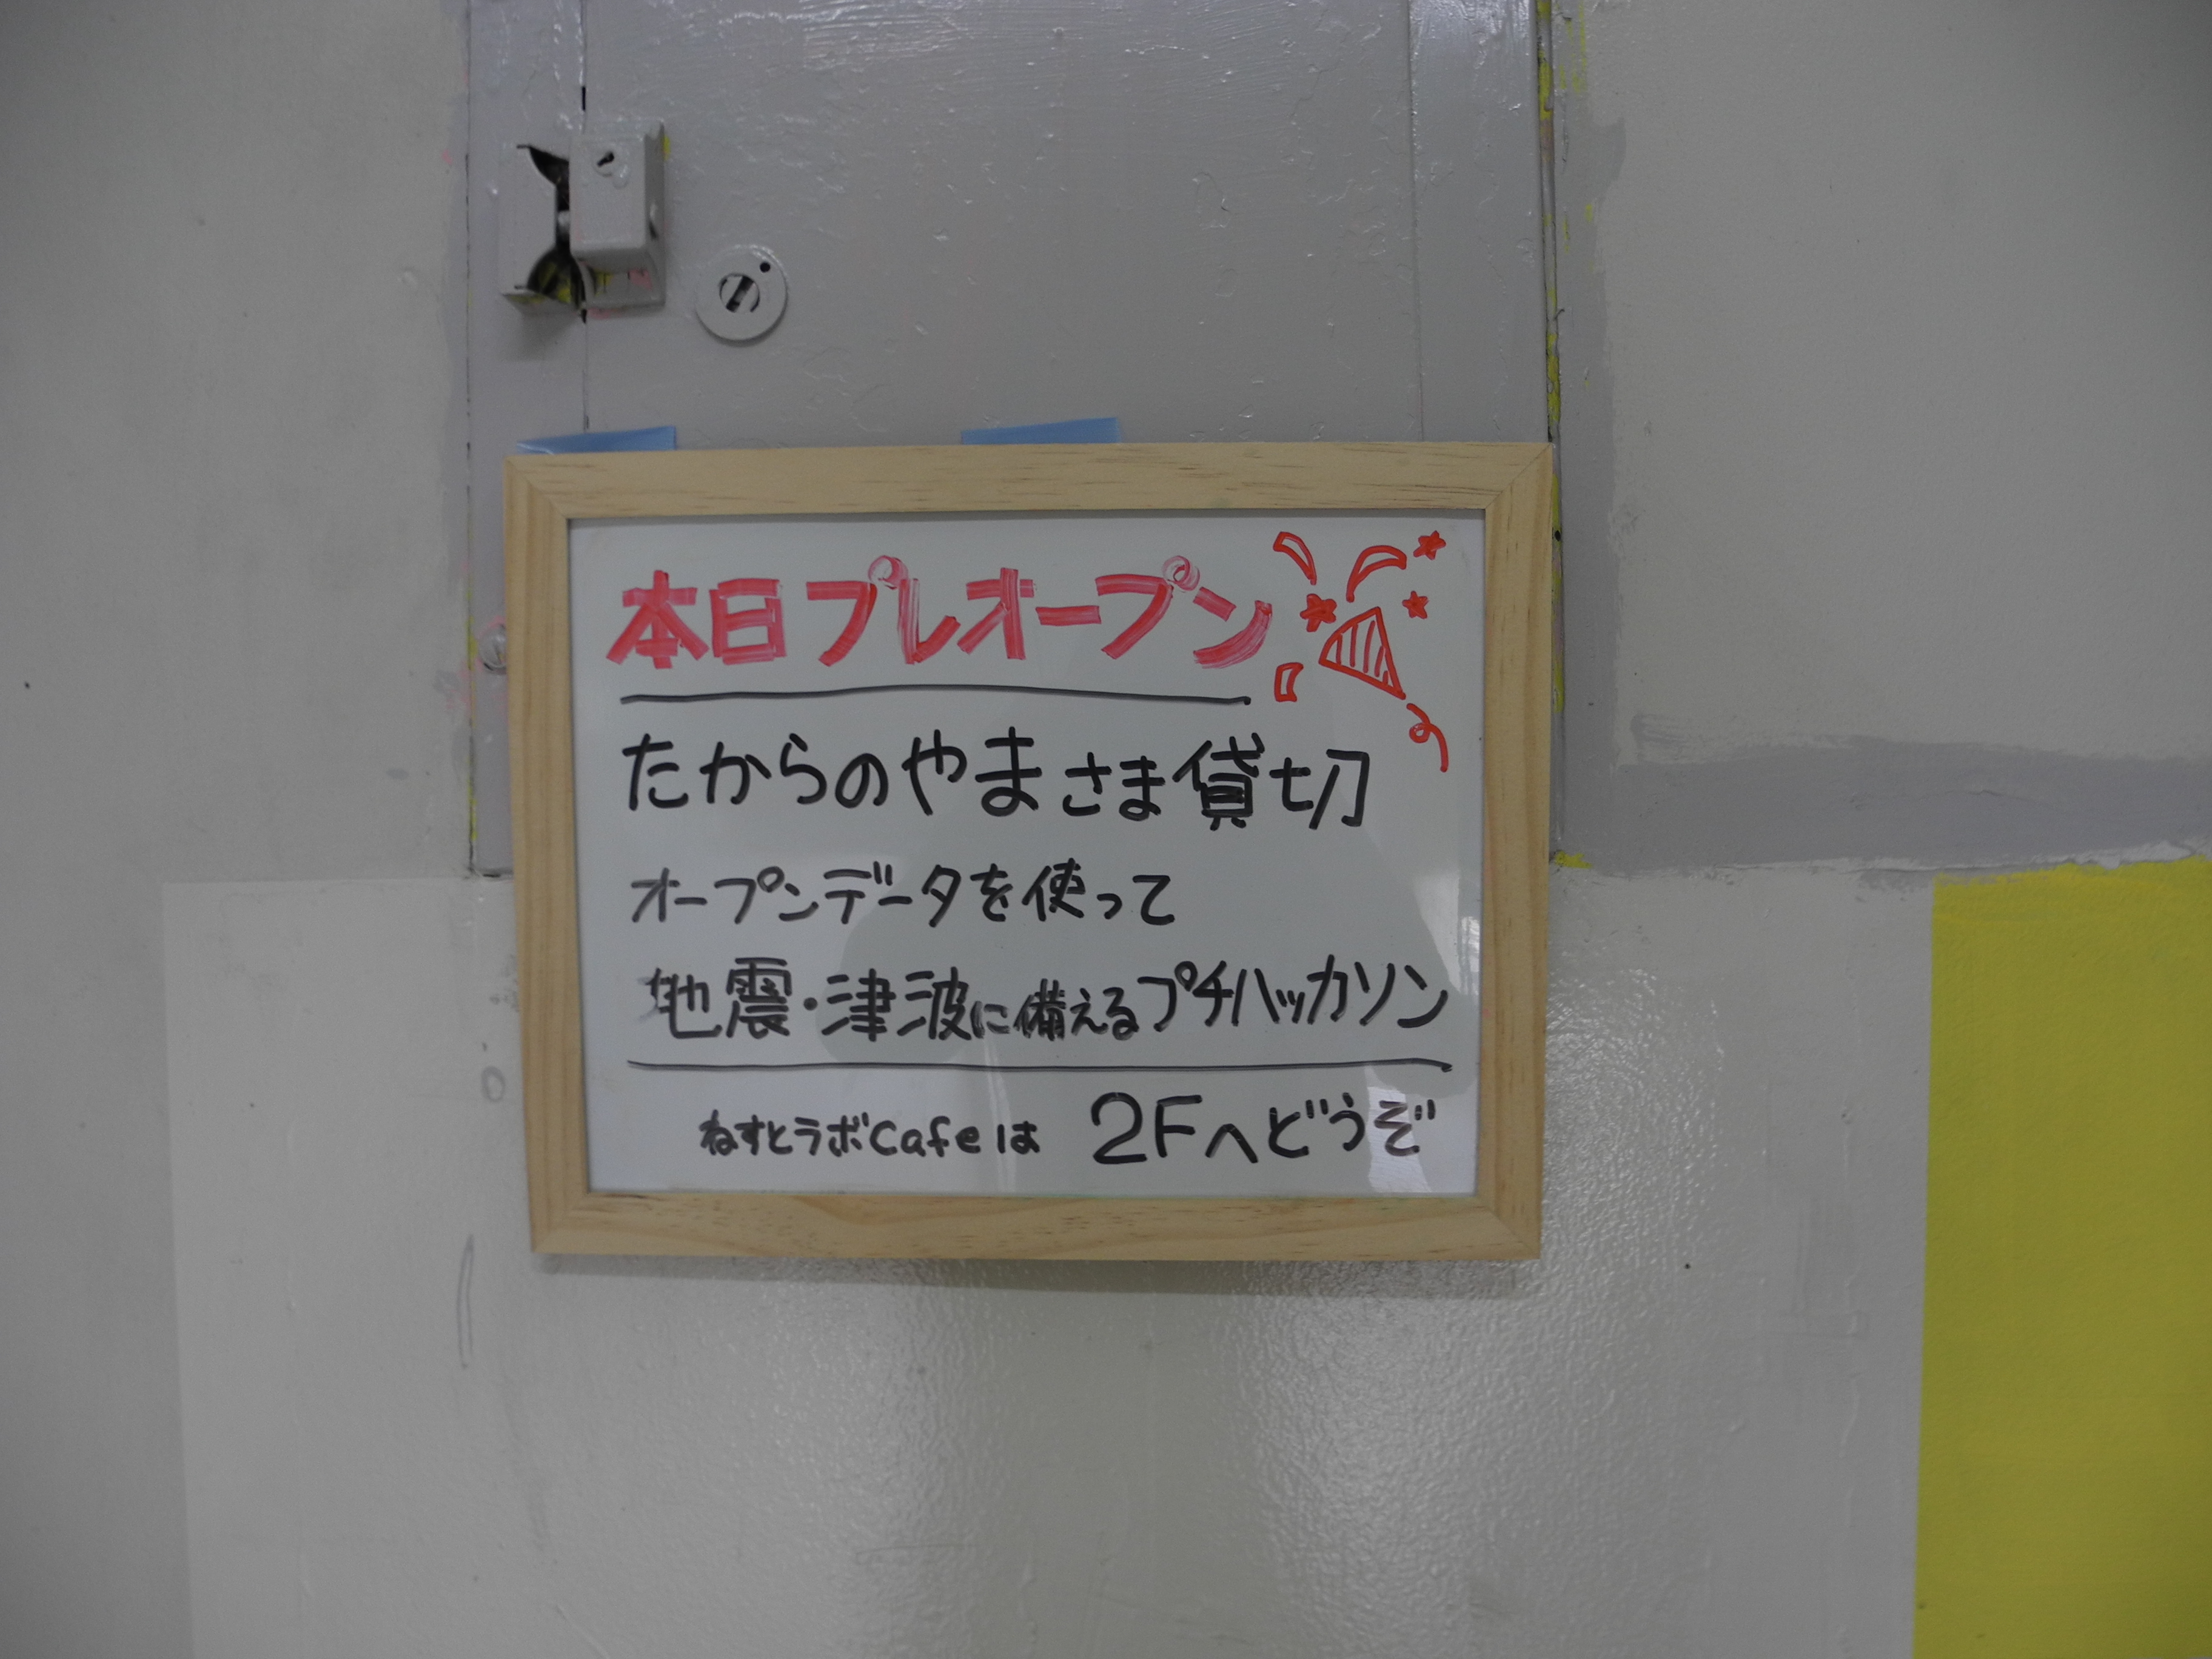 本日プレオープン
たからのやまさま貸切
オープンデータを使って
地震・津波に備えるプチハッカソン
ねすとラボCafeは 2Fへどうぞ